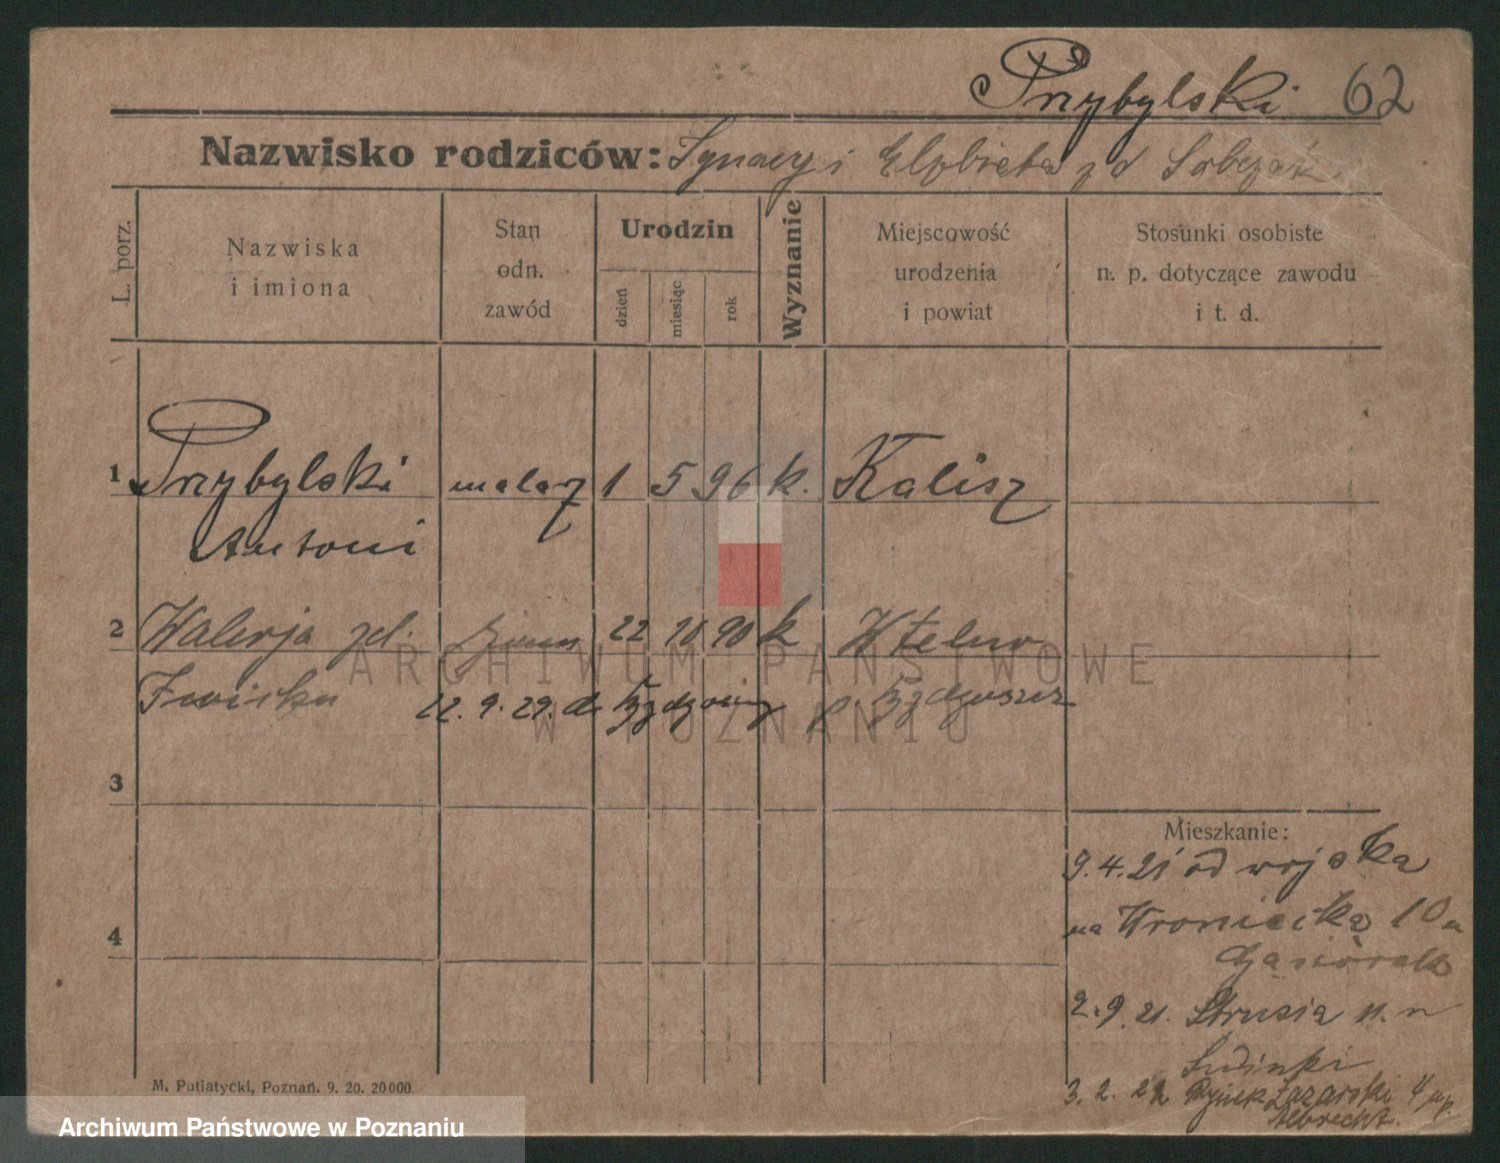 Przybylski 62
Nazwisko rodziców: Ignacy i Elżbieta zd Sobczak
L. porz.
Nazwiska
i imiona
Stan
odn.
zawód
Urodzin
dzień
miesiąc
rok
Wyznanie
Miejscowość
urodzenia
i powiat
Stosunki osobiste
n. p. dotyczące zawodu
i t. d.
1 Przybylski malarz 1 5 96 k. Kalisz
Antoni
2 Walerja zd. 22 10 90 k Wtelno
22. 9. 29. do p. Bydgoszcz
ARCHIWUM PAŃSTWOWE
W POZNANIU
3
4
Mieszkanie:
9.4.21 od wojska
na Wroniecka 10 u
Gąsiorek
2.9.21. Strusia 11. u
3. 2. 22 Rynek Łazarski 4
Albrecht.
M. Putiatycki, Poznań. 9. 20. 20000
Archiwum Państwowe w Poznaniu